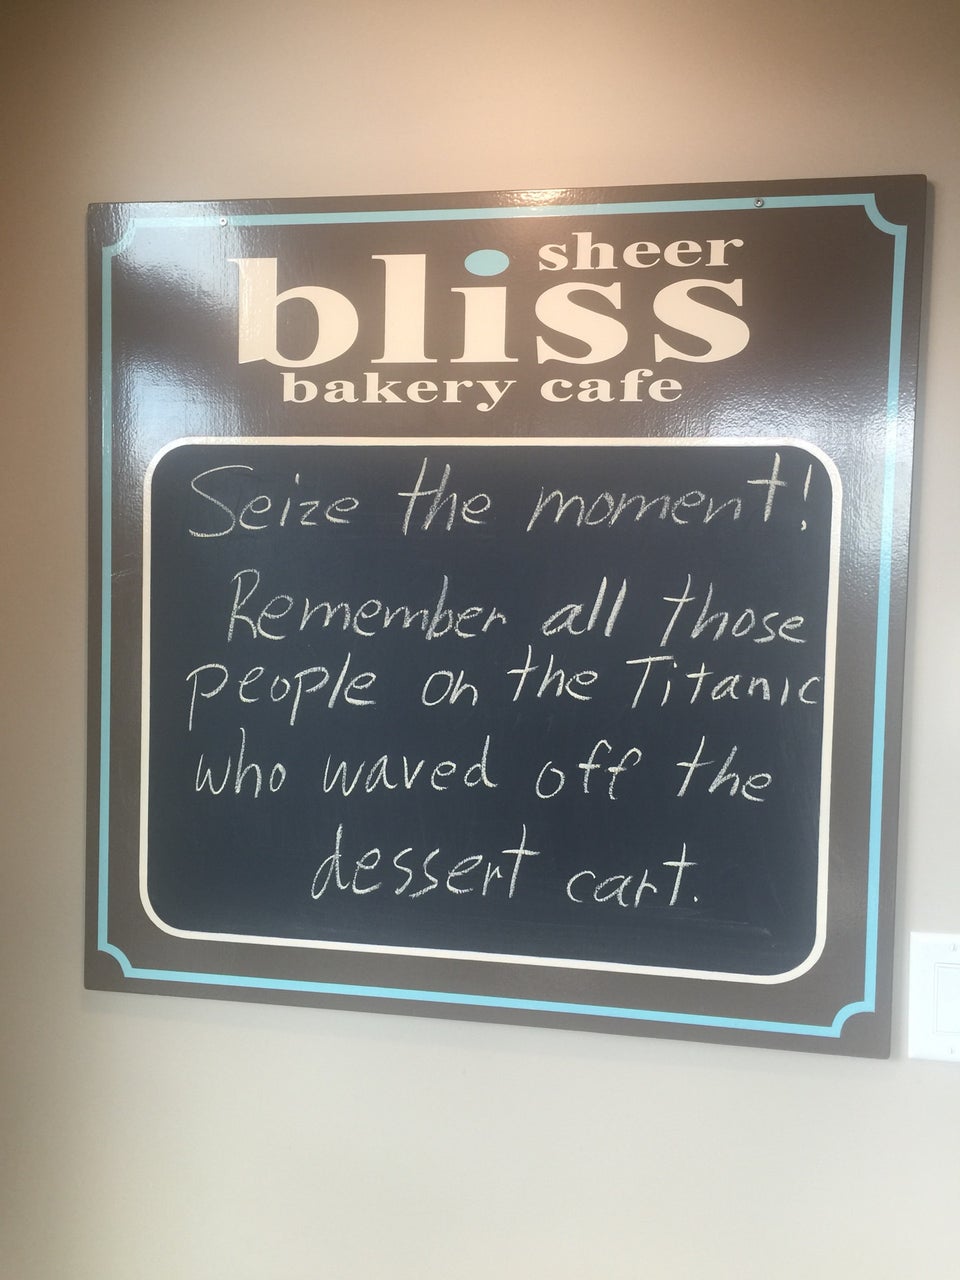 sheer
bliss
bakery cafe
Seize the moment!
Remember all those
people on the Titanic
who waved off the
dessert cart.